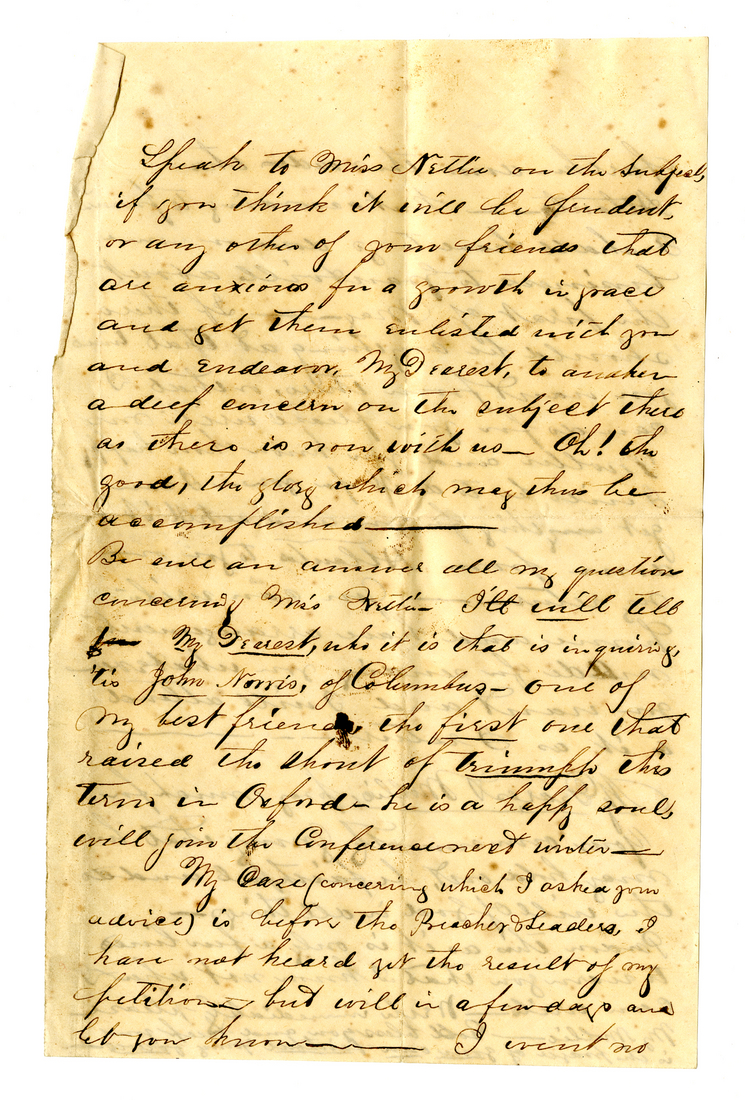 Speak to Miss Nettie on the Subject,
if you think it will be prudent,
or any other of your friends that
are anxious for a growth in grace
and get them enlisted with you
and endeavor, My Dearest, to awaken
a deep concern on the subject there
as there is now with us— Oh! the
good, the glory which may thus be
accomplished——
Be sure an answer all my question
concerning Miss Nettie— I'll will tell
My Dearest, who it is that is inquiring,
'tis John Norris, of Columbus— one of
my best friends, the first one that
raised the shout of triumph this
term in Oxford— he is a happy soul,
will join the Conference next winter—
My Case (concering which I asked your
advice) is before the Preacher & Leaders, I
have not heard yet the result of my
petition— but will in a few days and
let you know—— I went no